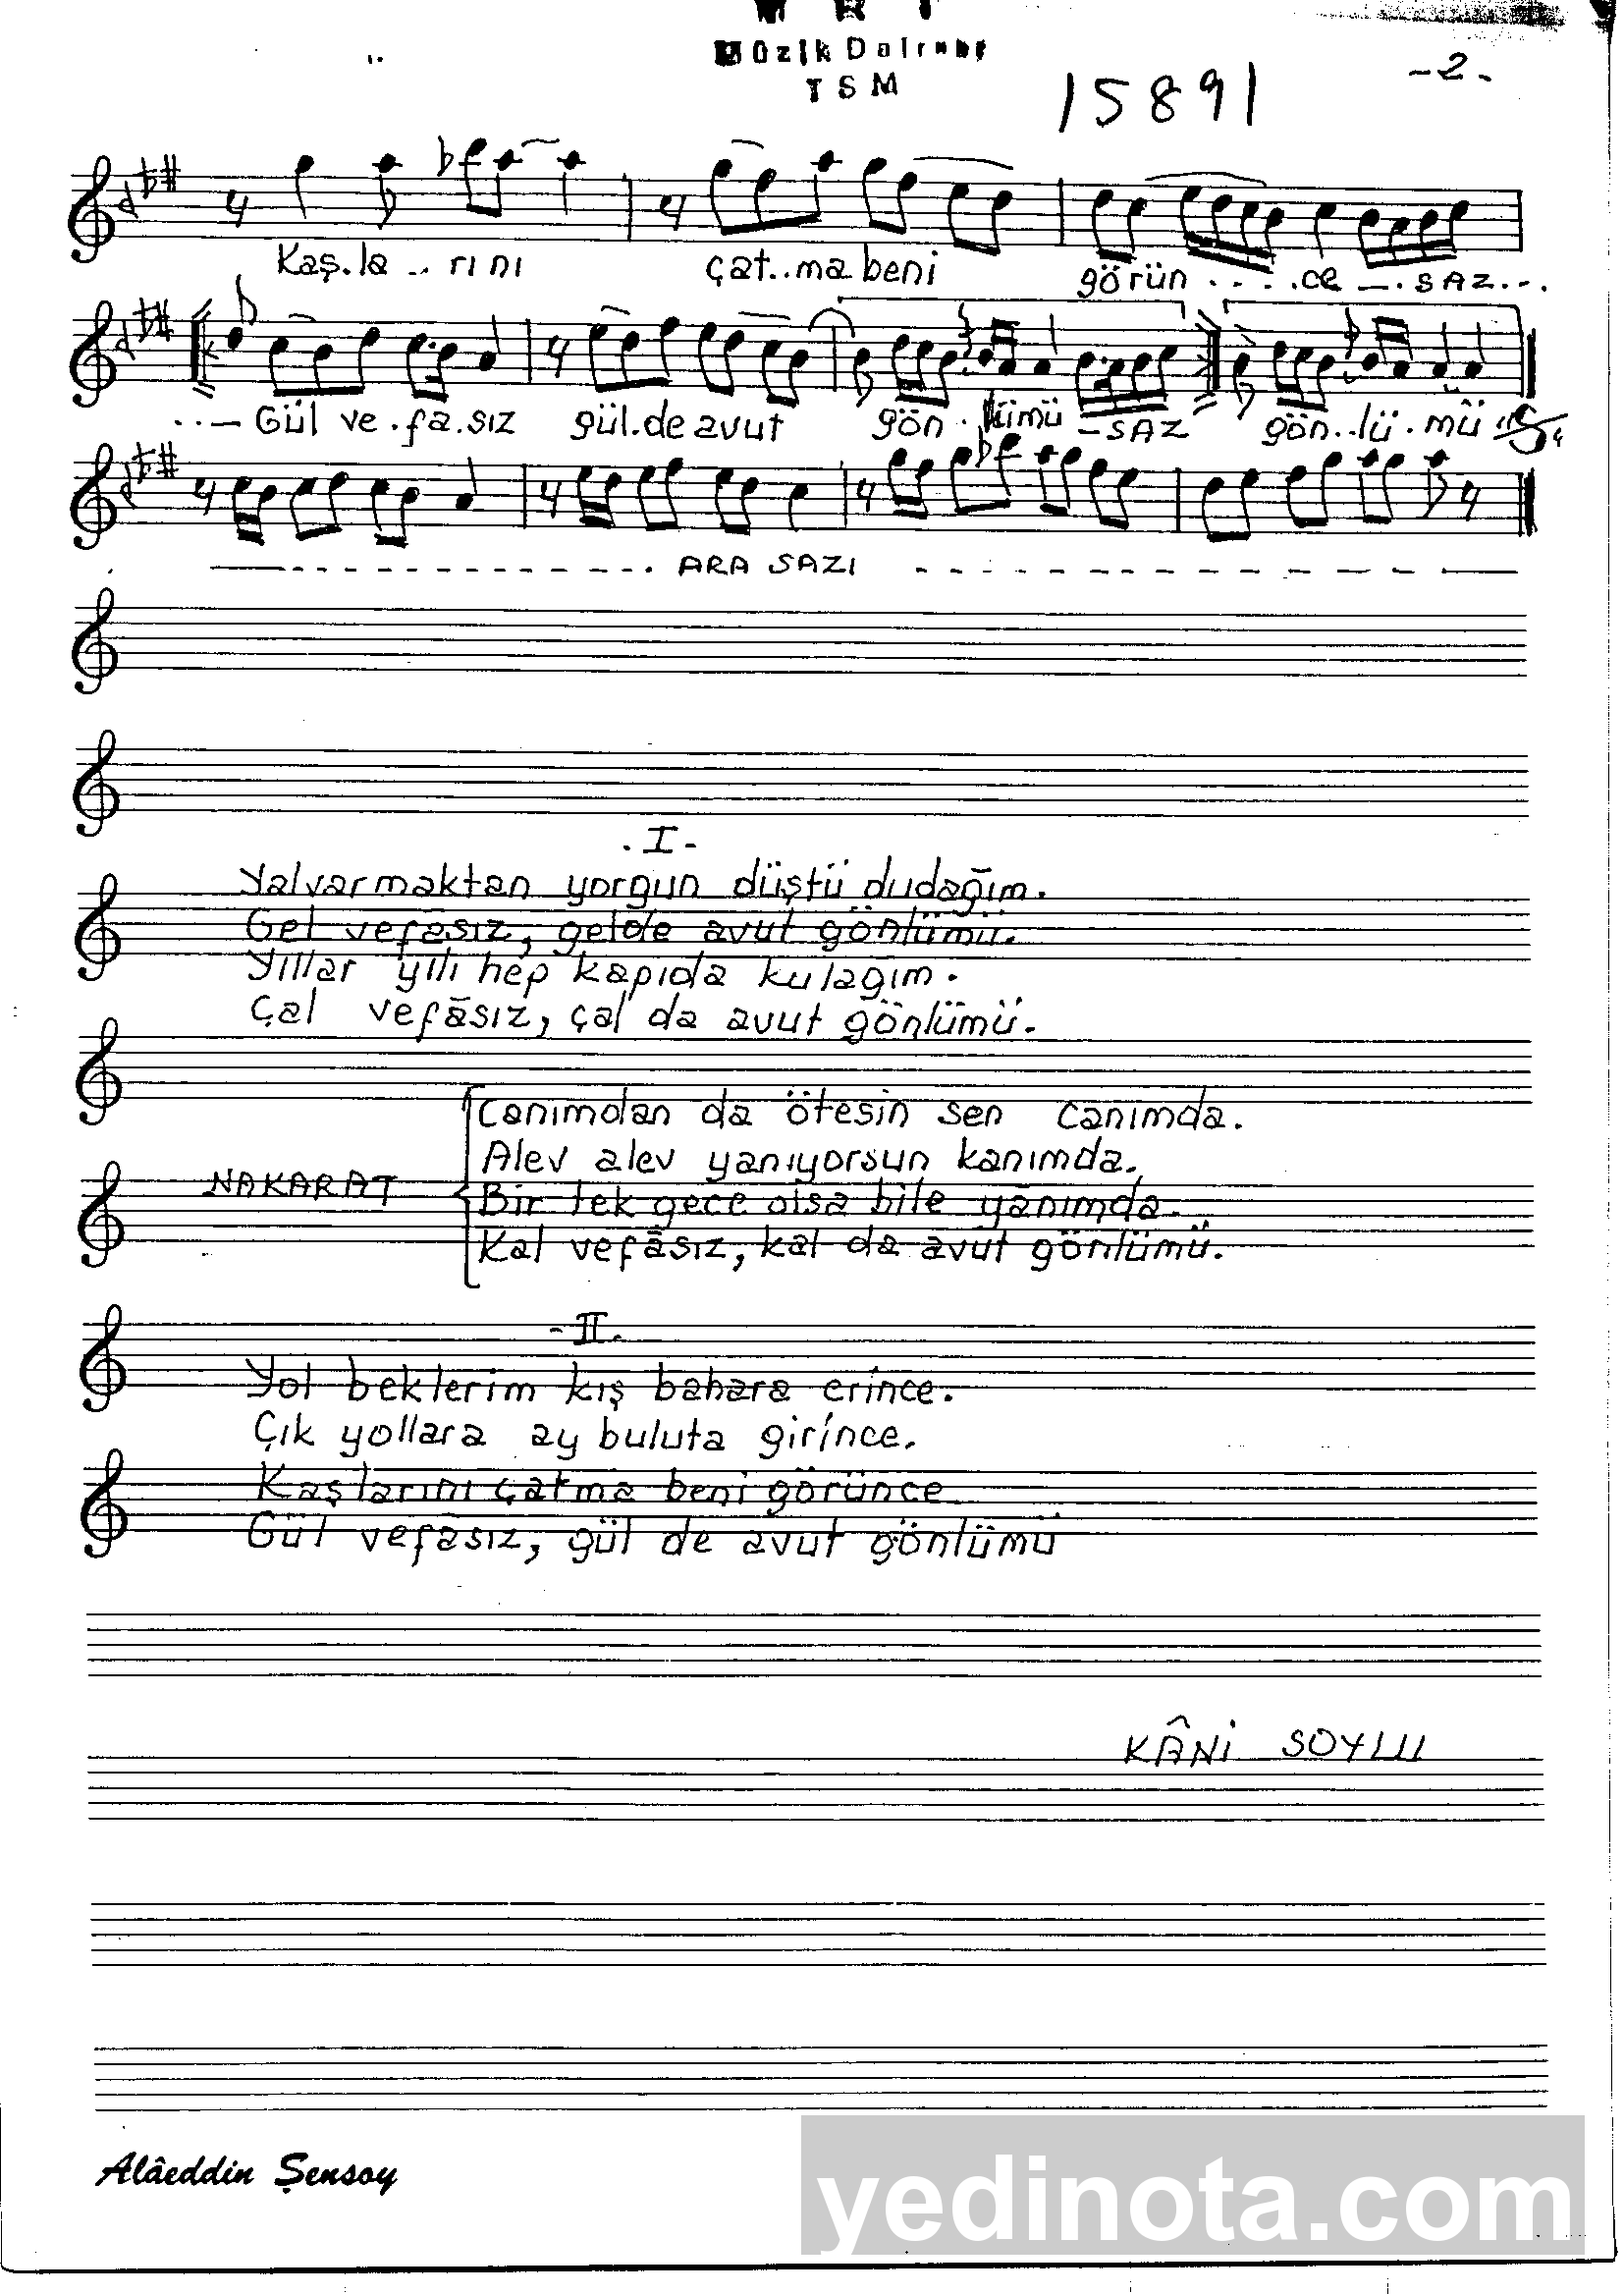 Müzik Dairesi
TSM
15891
-2-
Kaş.la..rı nı çat..ma beni görün.....ce_.SAZ...
..—Gül ve.fa.sız gül.de avut gön..lümü -SAZ gön..lü.mü
ARA SAZI
.I-
Yalvarmaktan yorgun düştü dudağım.
Gel vefasız, gelde avut gönlümü.
Yıllar yılı hep kapıda kulagım.
Çal vefāsız, çal da avut gönlümü.
Canımdan da ötesin sen canımda.
Alev alev yanıyorsun kanımda.
NAKARAT
Bir tek gece olsa bile yanımda.
Kal vefāsız, kal da avut gönlümü.
-II.
Yol beklerim kış bahara erince.
Çık yollara ay buluta girince.
Kaşlarını çatma beni görünce
Gül vefasız, gül de avut gönlümü
KÂNİ SOYLU
Alâeddin Şensoy
yedinota.com